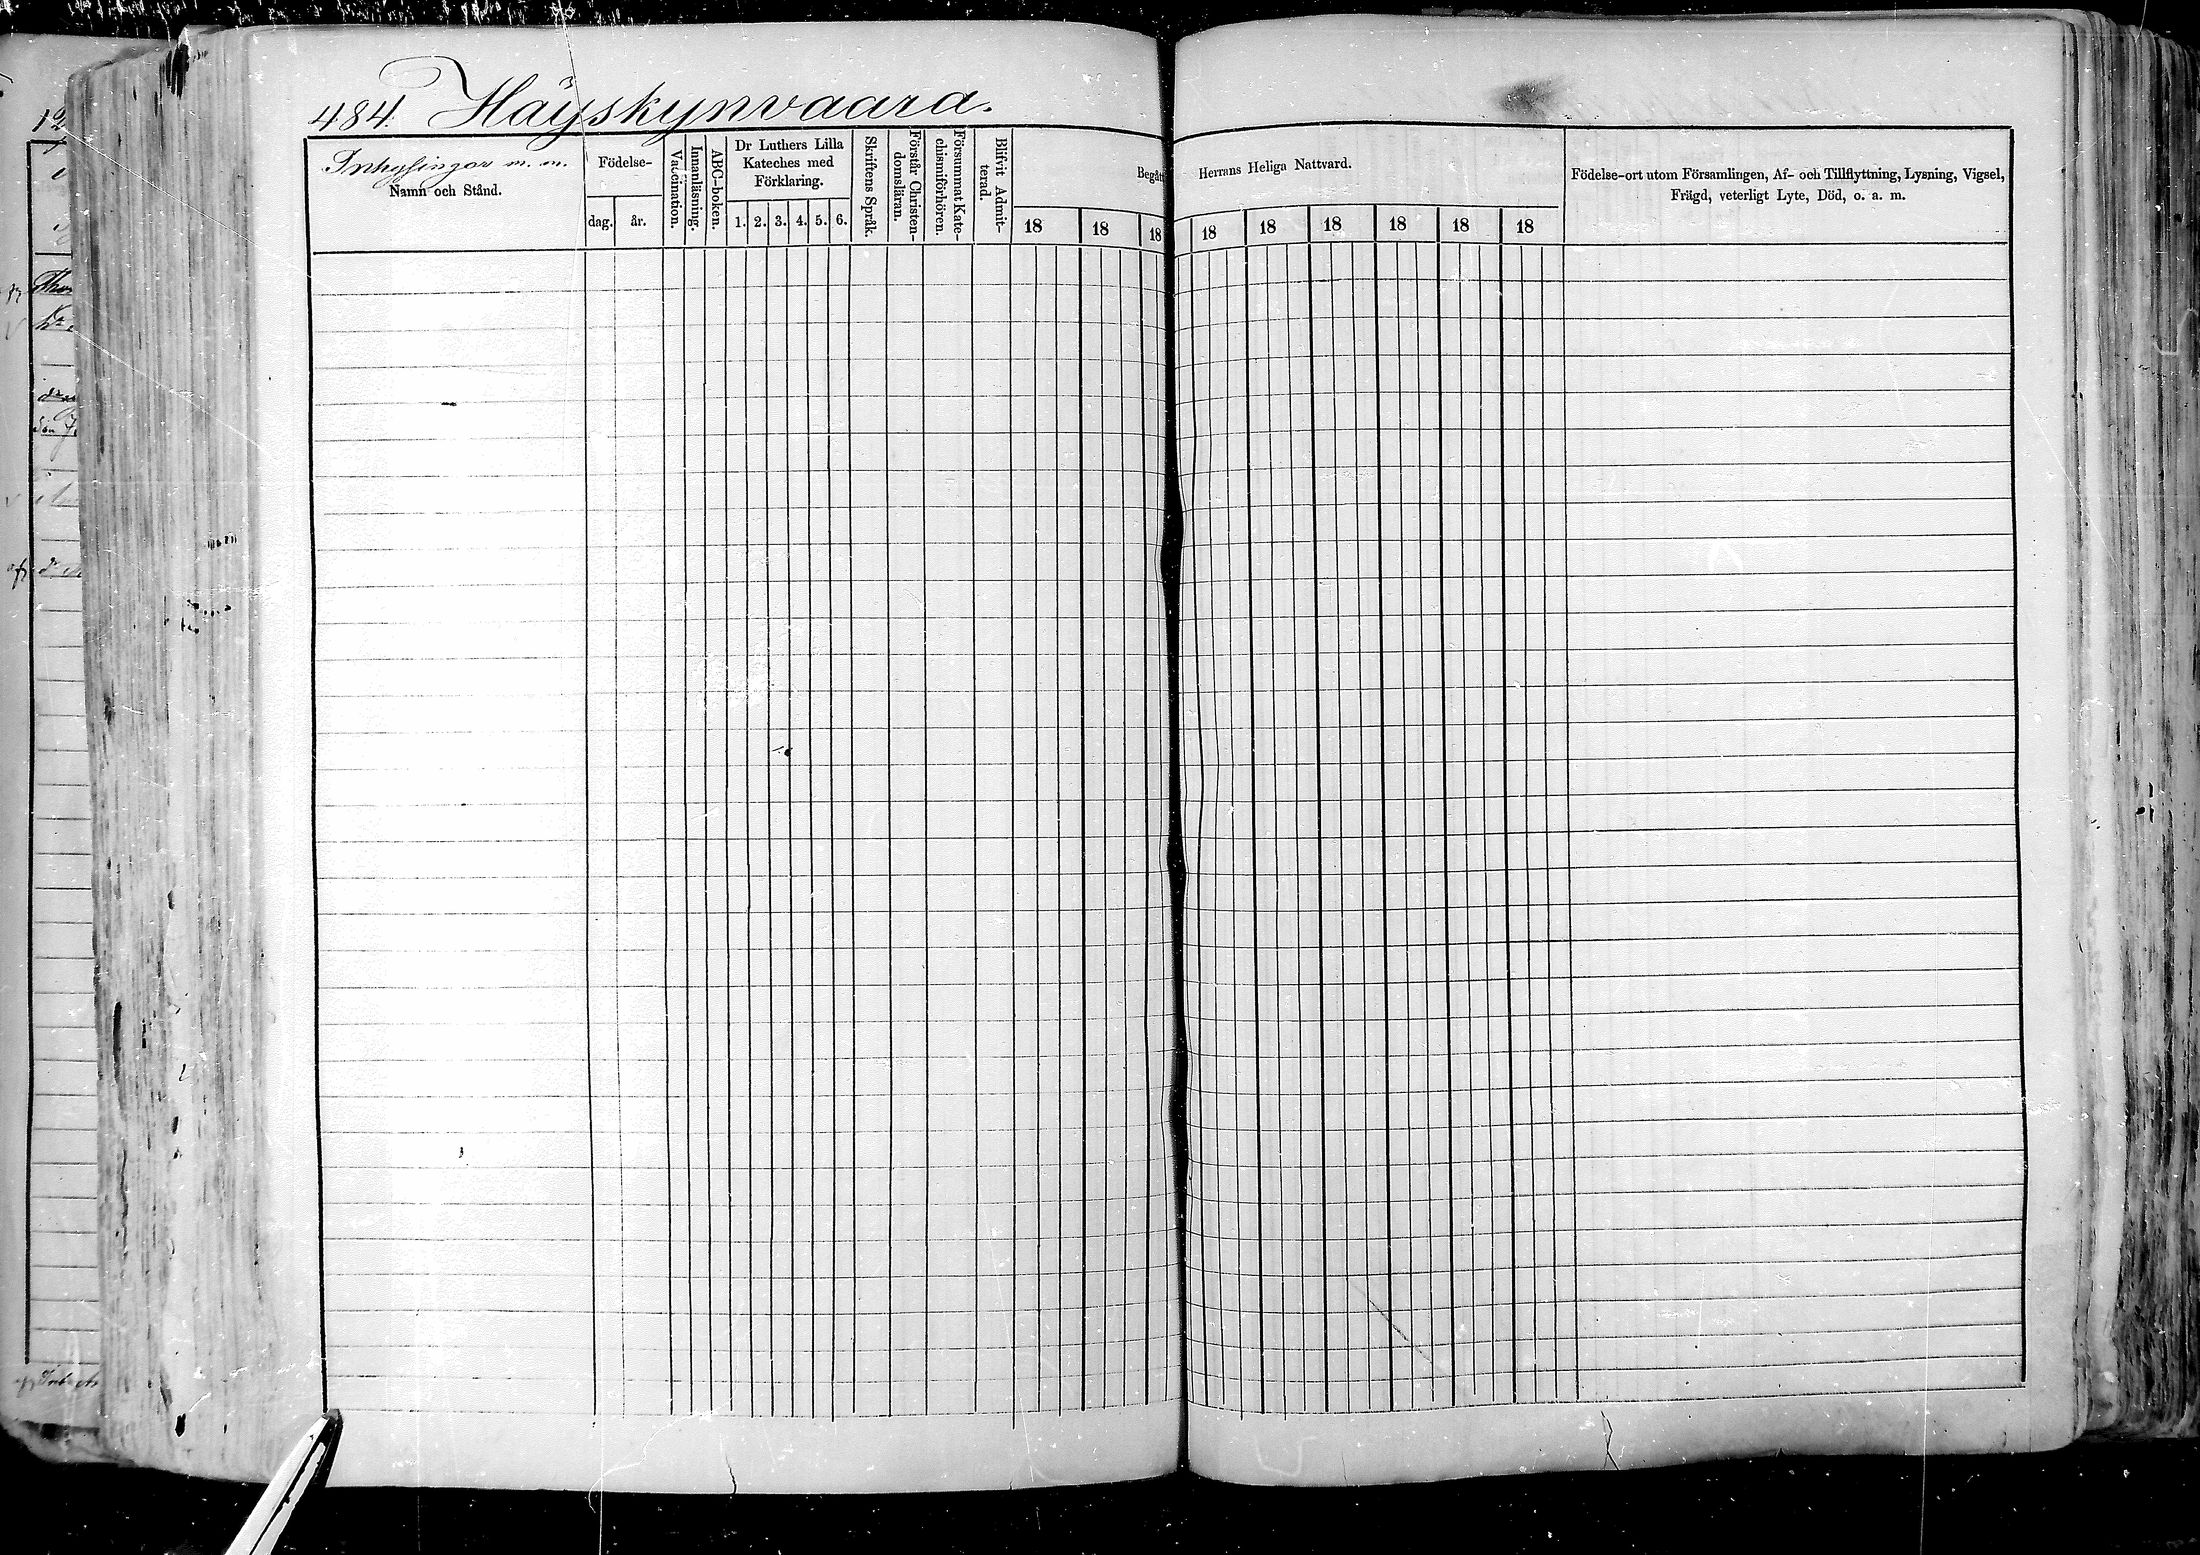 484. Häyskynvaara.
Inhysingar m. m.
Namn och Stånd.
Födelse-
dag. år.
Vaccination.
Innanläsning.
ABC-boken.
Dr Luthers Lilla
Kateches med
Förklaring.
1. 2. 3. 4. 5. 6.
Skriftens Språk.
Förstår Christen-
domsläran.
Försummat Kate-
chismiförhören.
Blifvit Admit-
terad.
Begått
Herrans Heliga Nattvard.
18 18 18 18 18 18 18 18 18
Födelse-ort utom Församlingen, Af- och Tillflyttning, Lysning, Vigsel,
Frägd, veterligt Lyte, Död, o. a. m.